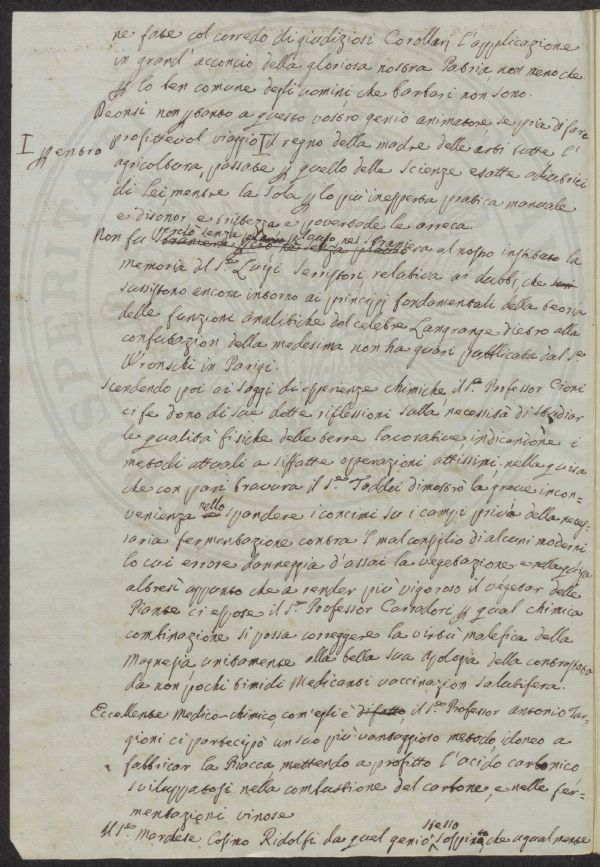 ne fate col corredo di giudiziosi Corollarj l'applicazione
in grand'acconcio della gloriosa nostra Patria non meno che
p lo ben comune degli uomini che barbari non sono.
Deonsi non p tanto a questo vostro genio animatore se pria di fare
profittevol viaggio il regno della madre delle arti tutte l'
I p entro
agricoltura, passate p quello delle Scienze esatte adiutrici
di Lei, mentre la sola p lo più inesperta pratica manuale
e disonor e tristezza e povertade le arreca.
Non fu al nostro instituto la
memoria del S.r Luigi Serristori relativa ai dubbj, che
sussistono ancora intorno ai principj fondamentali della teoria
delle funzioni analitiche del celebre Langrange dietro alla
confutazion della medesima non ha guari pubblicata dal S.r
Wronschi in Parigi.
Scendendo poi ai saggi di esperienze chimiche, il S.r Professor Cioni
ci fe dono di sue dotte riflessioni sulla necessità di studiar
le qualità fisiche delle terre lavorative indicandone i
metodi attuali a siffatte operazioni attissimi, nella guisa
che con pari bravura il S.r Taddei dimostrò la grave incon-
venienza nello spandere i concimi su i campi privi della neces-
saria fermentazione contra 'l mal consiglio di alcuni moderni
lo cui errore danneggia d'assai la vegetazione e nella guisa
altresì appunto che a render più vigoroso il vegetar delle
Piante ci espose il S.r Professor Carradori p qual chimica
combinazione si possa correggere la virtù malefica della
Magnesia unitamente alla bella sua Apologia della contrastata
da non pochi timidi Medicanti vaccinazion salutifera.
Eccellente Medico-chimico, com'egli è di fatto, il S.r Professor Antonio Tar-
gioni ci partecipò un suo più vantaggioso metodo idoneo a
fabbricar la Biacca mettendo a profitto l'acido carbonico
sviluppatosi nella combustione del carbone, e nelle fer-
mentazioni vinose
Il S.r Marchese Cosimo Ridolfi da quel genio stesso sospinto, che agualmente